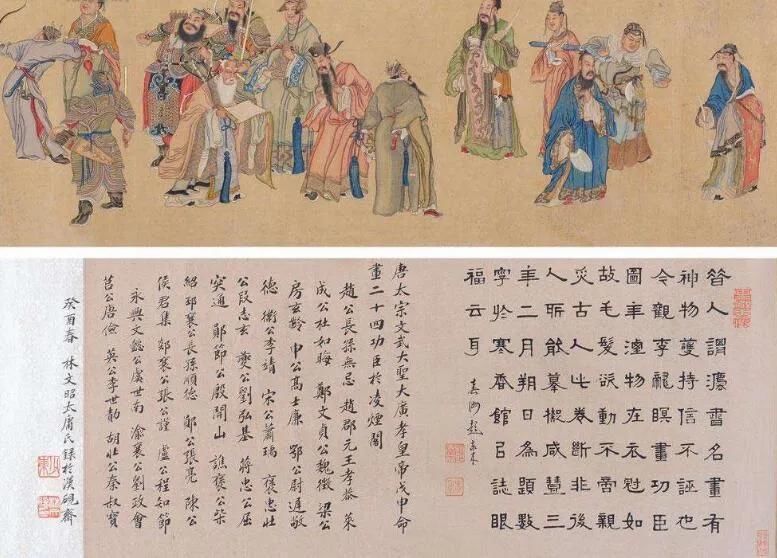 昔人謂灋書名畫有
神物護持信不誣也
今觀李龍眠畫功臣
圖年湮物在衣冠如
故毛髮欲動不啻親
炙古人此卷斷非後
人所能摹擬咸豐三
年二月朔日為題數
字於寒香館以誌眼
福云耳
唐太宗文武大聖大廣孝皇帝戊申命
畫二十四功臣於凌煙閣
趙公長孫無忌 趙郡元王孝恭 萊
成公杜如晦 鄭文貞公魏徵 梁公
房玄齡 申公高士廉 鄂公尉遲敬
德 衛公李靖 宋公蕭瑀 褒忠壯
公段志玄 夔公劉弘基 蔣忠公屈
突通 鄖節公殷開山 譙襄公柴
紹 邳襄公長孫順德 鄖公張亮 陳公
侯君集 郯襄公張公謹 盧公程知節
永興文懿公虞世南 渝襄公劉政會
莒公唐儉 英公李世勣 胡壯公秦叔寶
癸酉春 林文昭太膺氏錄於漢硯齋